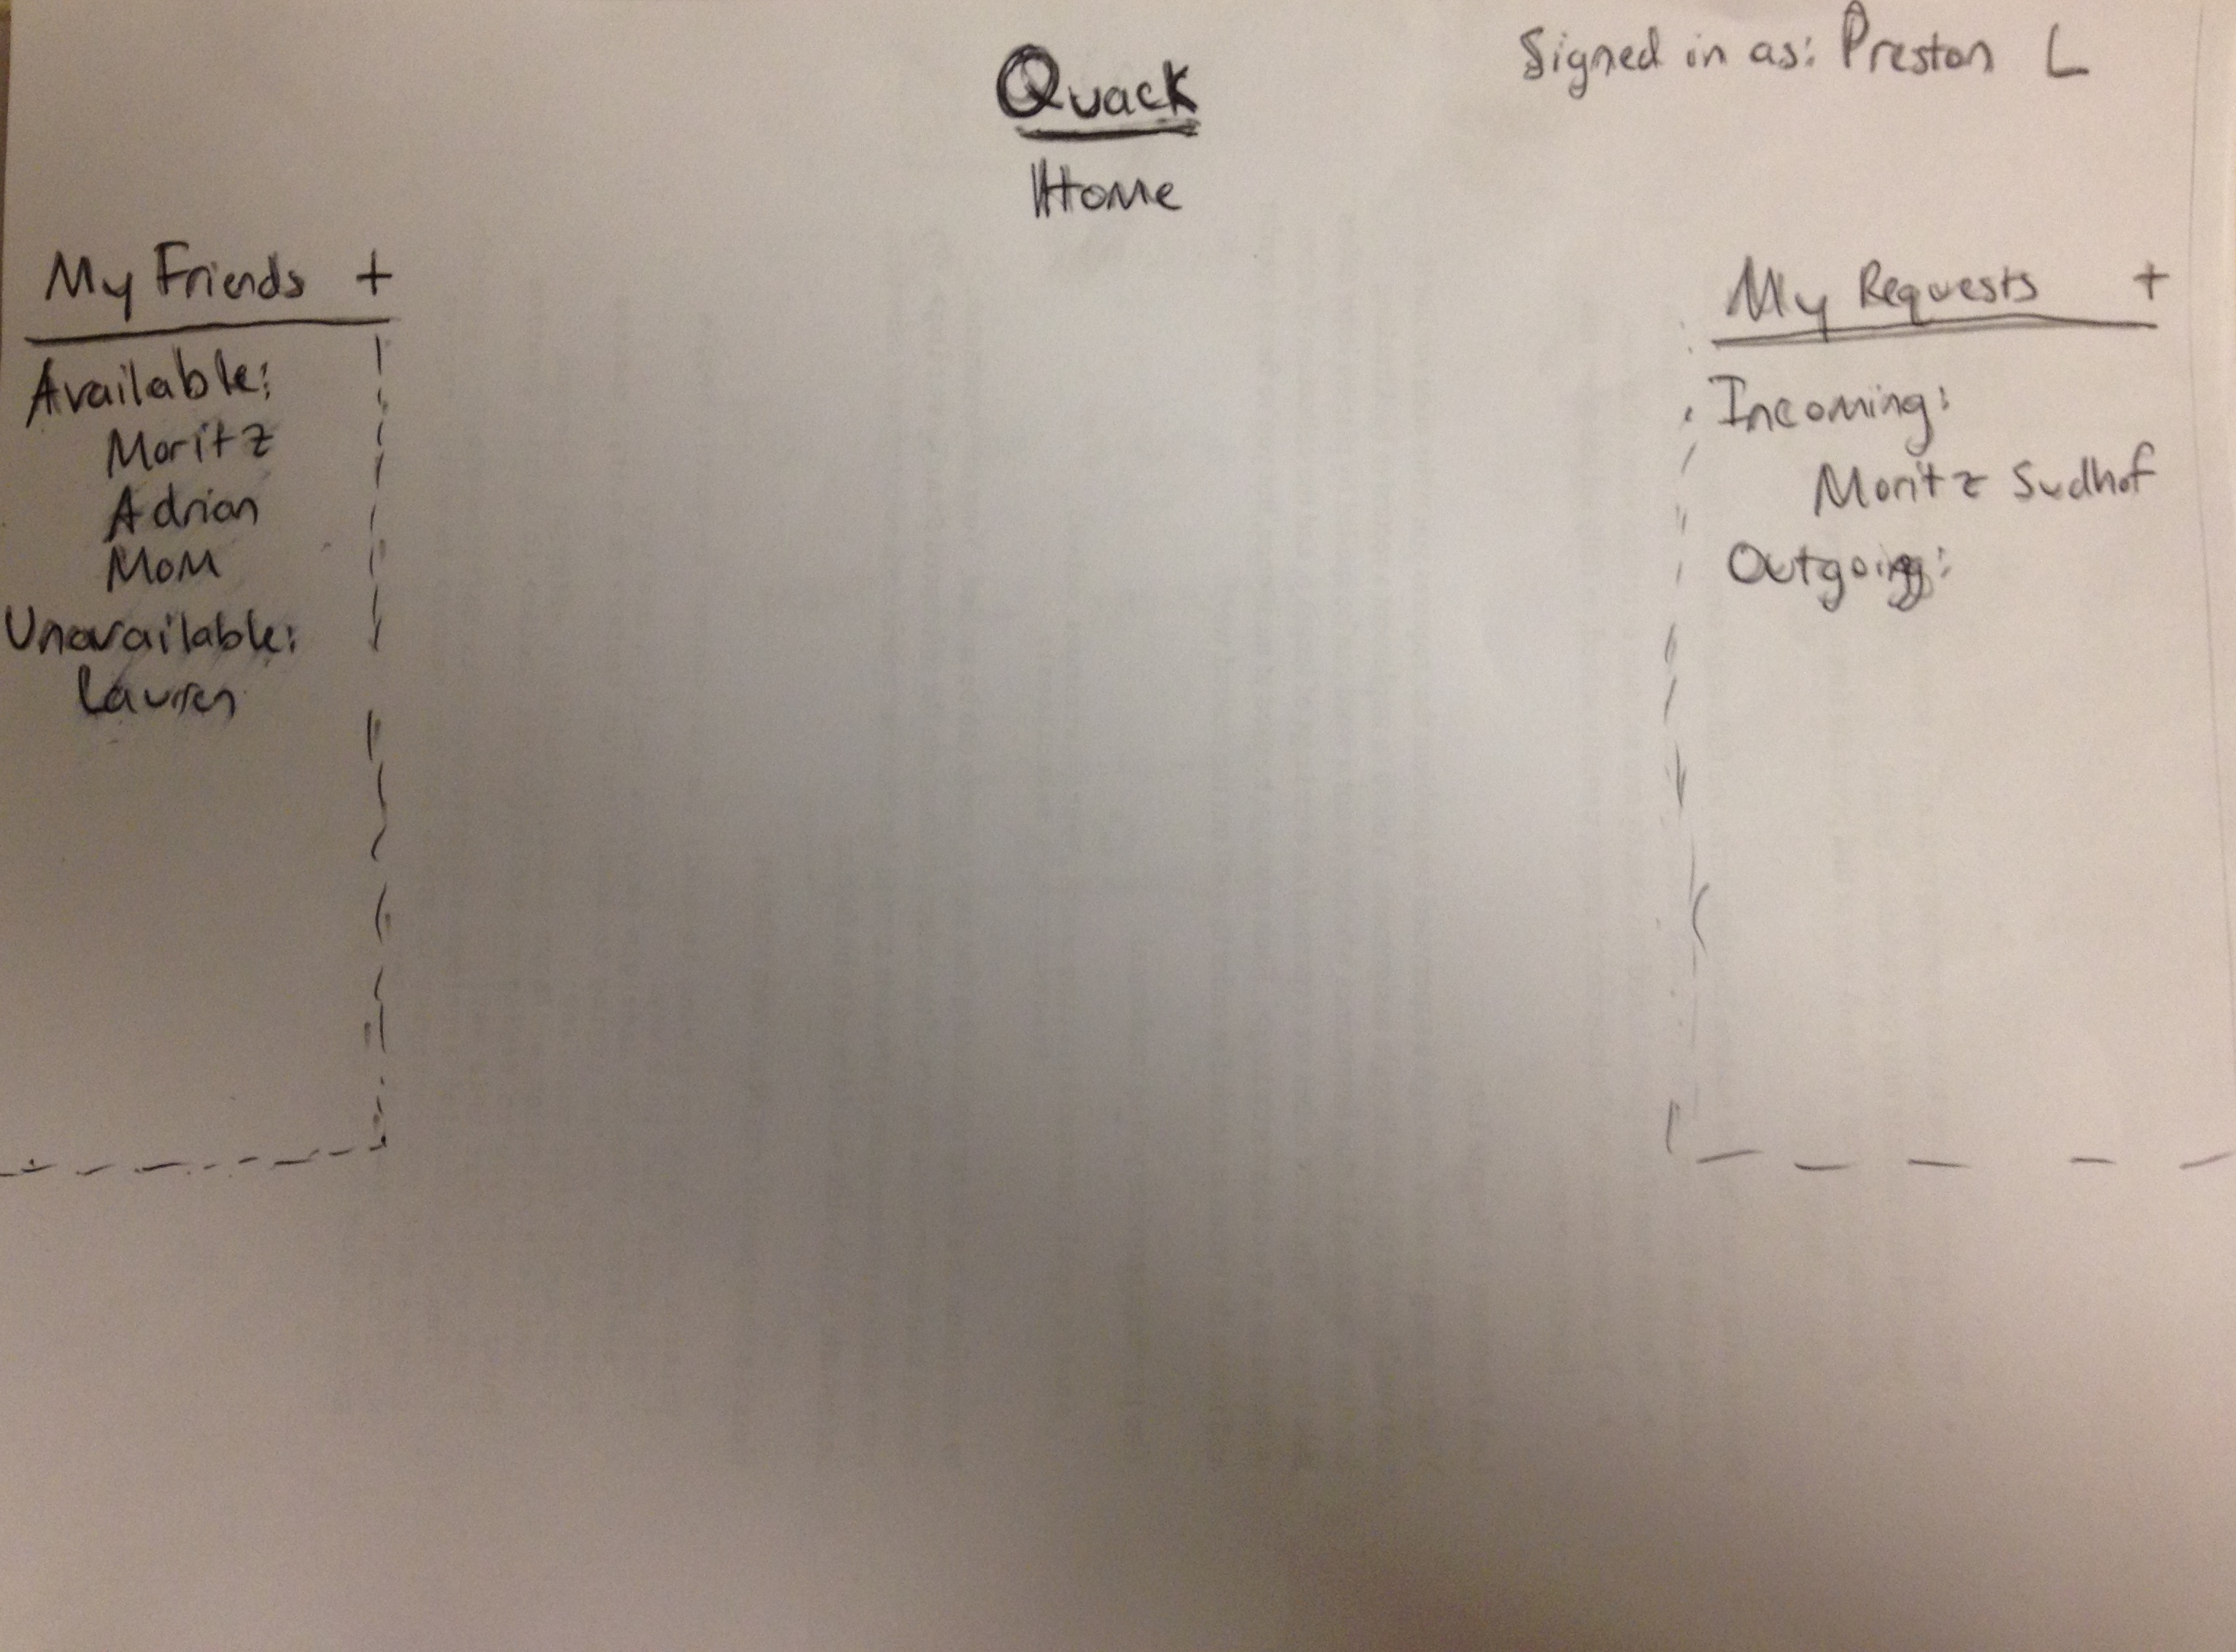 Quack
Signed in as: Preston L
Home
My Friends +
Available:
Moritz
Adrian
Mom
Unavailable:
Lauren
My Requests +
Incoming:
Moritz Sudhof
Outgoing: